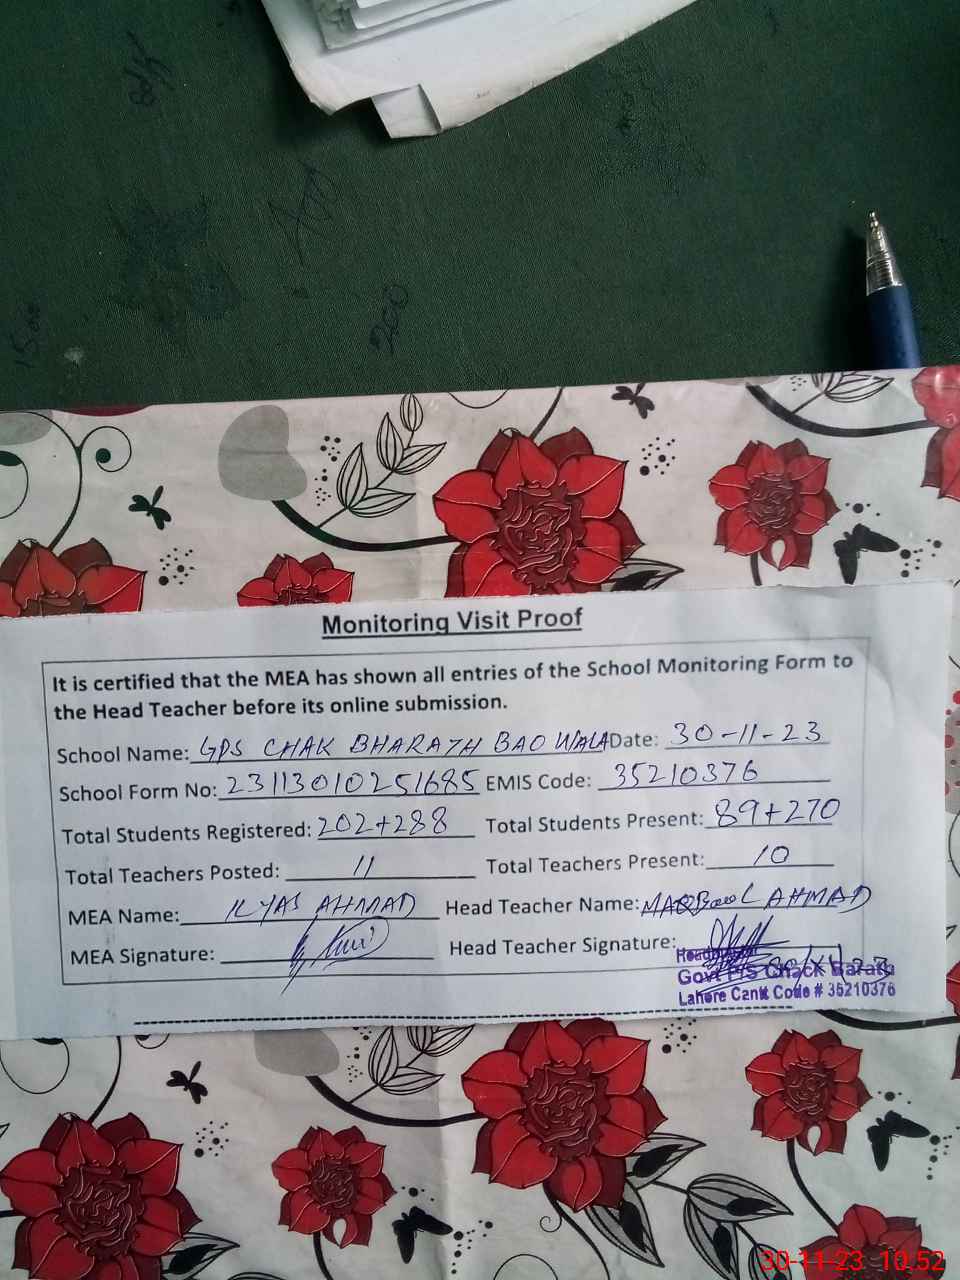 200
Monitoring Visit Proof
It is certified that the MEA has shown all entries of the School Monitoring Form to
the Head Teacher before its online submission.
School Name: GPS CHAK BHARATH BAO WALA Date: 30-11-23
School Form No: 23113010251685 EMIS Code: 35210376
Total Students Registered: 202+288 Total Students Present: 89+270
Total Teachers Posted: 11 Total Teachers Present: 10
MEA Name: ILYAS AHMAD Head Teacher Name: MAQBOOL AHMAD
MEA Signature: Head Teacher Signature:
Govt P/S Chack Baratu
Lahore Cantt Code # 35210376
30-11-23 10:52